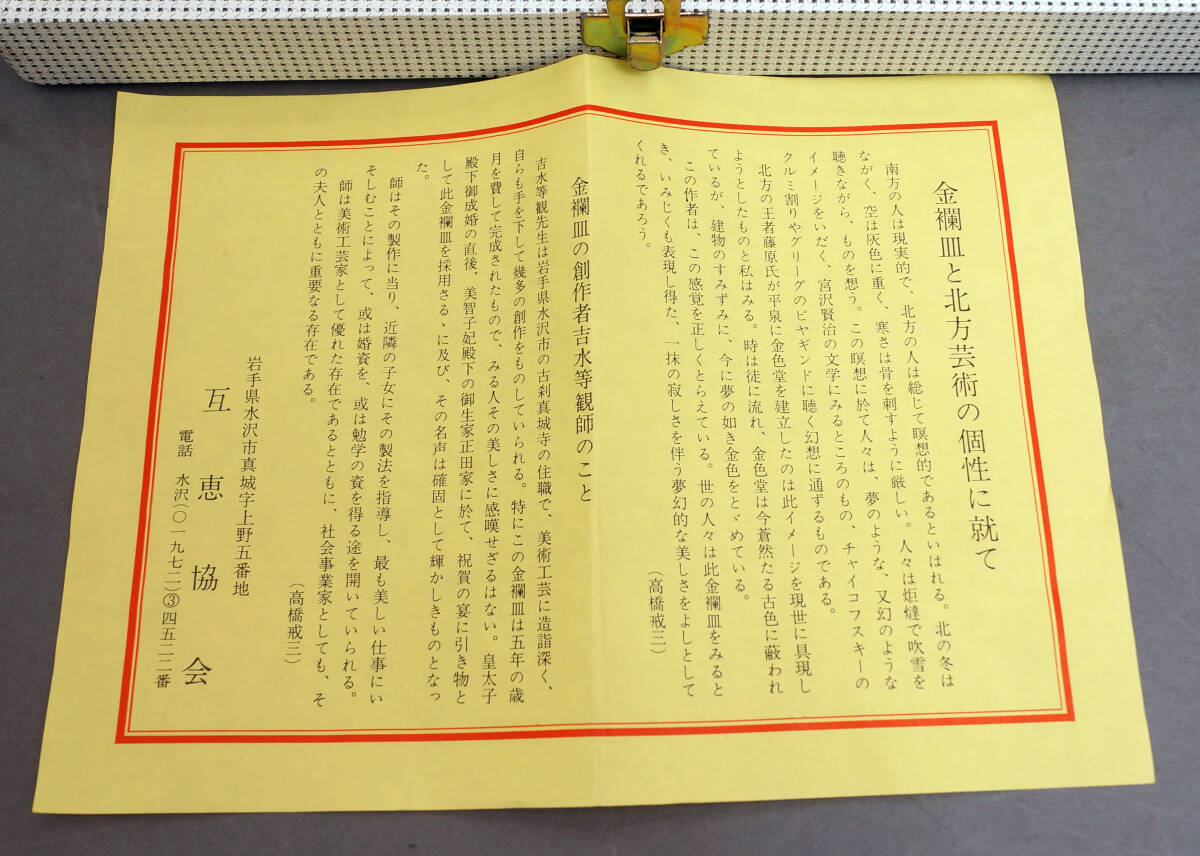 金襴皿と北方芸術の個性に就て
南方の人は現実的で、北方の人は総じて瞑想的であるといはれる。北の冬は
ながく、空は灰色に重く、寒さは骨を刺すように厳しい。人々は炬燵で吹雪を
聴きながら、ものを想う。この瞑想に於て人々は、夢のような、又幻のような
イメージをいだく、宮沢賢治の文学にみるところのもの、チャイコフスキーの
クルミ割りやグリーグのピヤギンドに聴く幻想に通ずるものである。
北方の王者藤原氏が平泉に金色堂を建立したのは此イメージを現世に具現し
ようとしたものと私はみる。時は徒に流れ、金色堂は今蒼然たる古色に蔽われ
ているが、建物のすみずみに、今に夢の如き金色をとゞめている。
この作者は、この感覚を正しくとらえている。世の人々は此金襴皿をみると
き、いみじくも表現し得た、一抹の寂しさを伴う夢幻的な美しさをよしとして
くれるであろう。
（高橋戒三）
金襴皿の創作者吉水等観師のこと
吉水等観先生は岩手県水沢市の古刹真城寺の住職で、美術工芸に造詣深く、
自らも手を下して幾多の創作をものしていられる。特にこの金襴皿は五年の歳
月を費して完成されたもので、みる人その美しさに感嘆せざるはない。皇太子
殿下御成婚の直後、美智子妃殿下の御生家正田家に於て、祝賀の宴に引き物と
して此金襴皿を採用さるゝに及び、その名声は確固として輝かしきものとなっ
た。
師はその製作に当り、近隣の子女にその製法を指導し、最も美しい仕事にい
そしむことによって、或は婚資を、或は勉学の資を得る途を開いていられる。
師は美術工芸家として優れた存在であるとともに、社会事業家としても、そ
の夫人とともに重要なる存在である。
（高橋戒三）
岩手県水沢市真城字上野五番地
互恵協会
電話 水沢（〇一九七二）③四五二二番